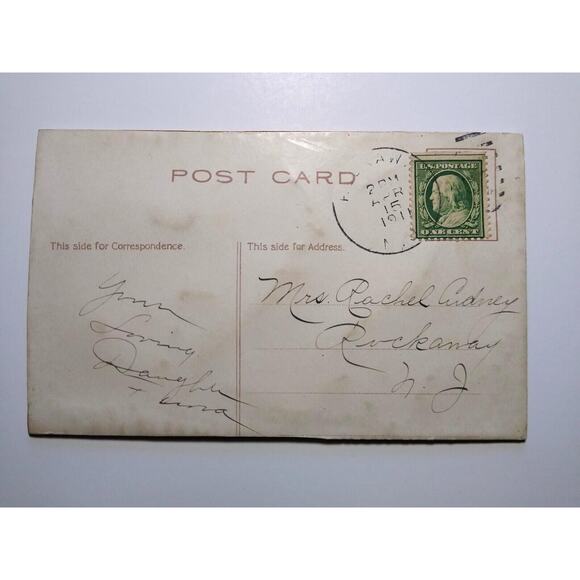 POST CARD
U.S. POSTAGE
ONE CENT
2 PM
APR
15
1911
This side for Correspondence.
This side for Address.
Your
Loving
Daughter
+
Mrs. Rachel Cudney
Rockaway
N. J